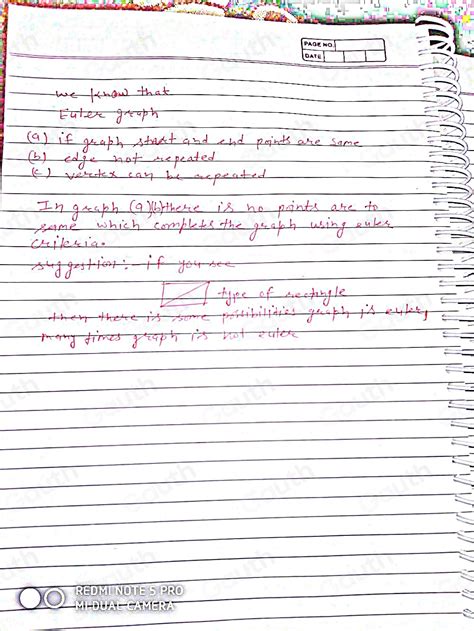 PAGE NO.
DATE
we know that
Euler graph
(a) if graph start and end points are same
(b) edge not repeated
(c) vertex can be repeated
In graph (a)(b) there is no points are to
same which completes the graph using euler
criteria.
suggestion: if you see
type of rectngle
then there is some possibilities graph is euler,
many times graph is not euler
REDMI NOTE 5 PRO
MI DUAL CAMERA